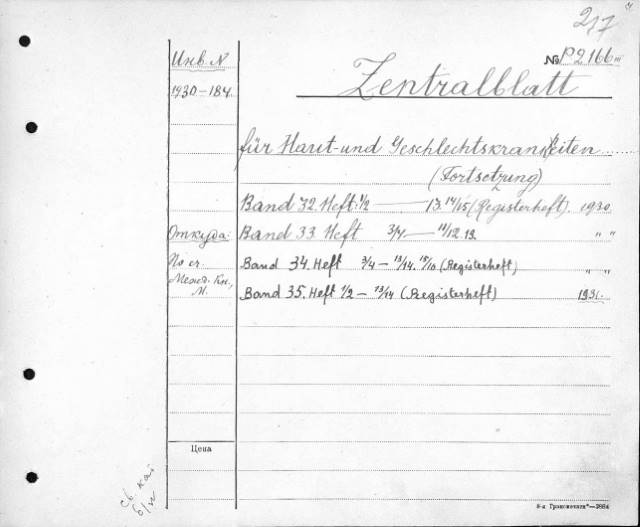 217
№ P2166 III
Инв. N
1930–184.
Zentralblatt
für Haut- und Geschlechtskrankheiten
(Fortsetzung)
Band 32. Heft. 1/2 — 13. 14/15 (Registerheft). 1930.
Откуда:
Band 33. Heft 3/4. — 11/12 13. " "
По сч.
Межд. Кн.,
М.
Band 34. Heft 3/4 – 13/14. 15/16 (Registerheft) " "
Band 35. Heft 1/2 – 13/14 (Registerheft) 1931.
Цена